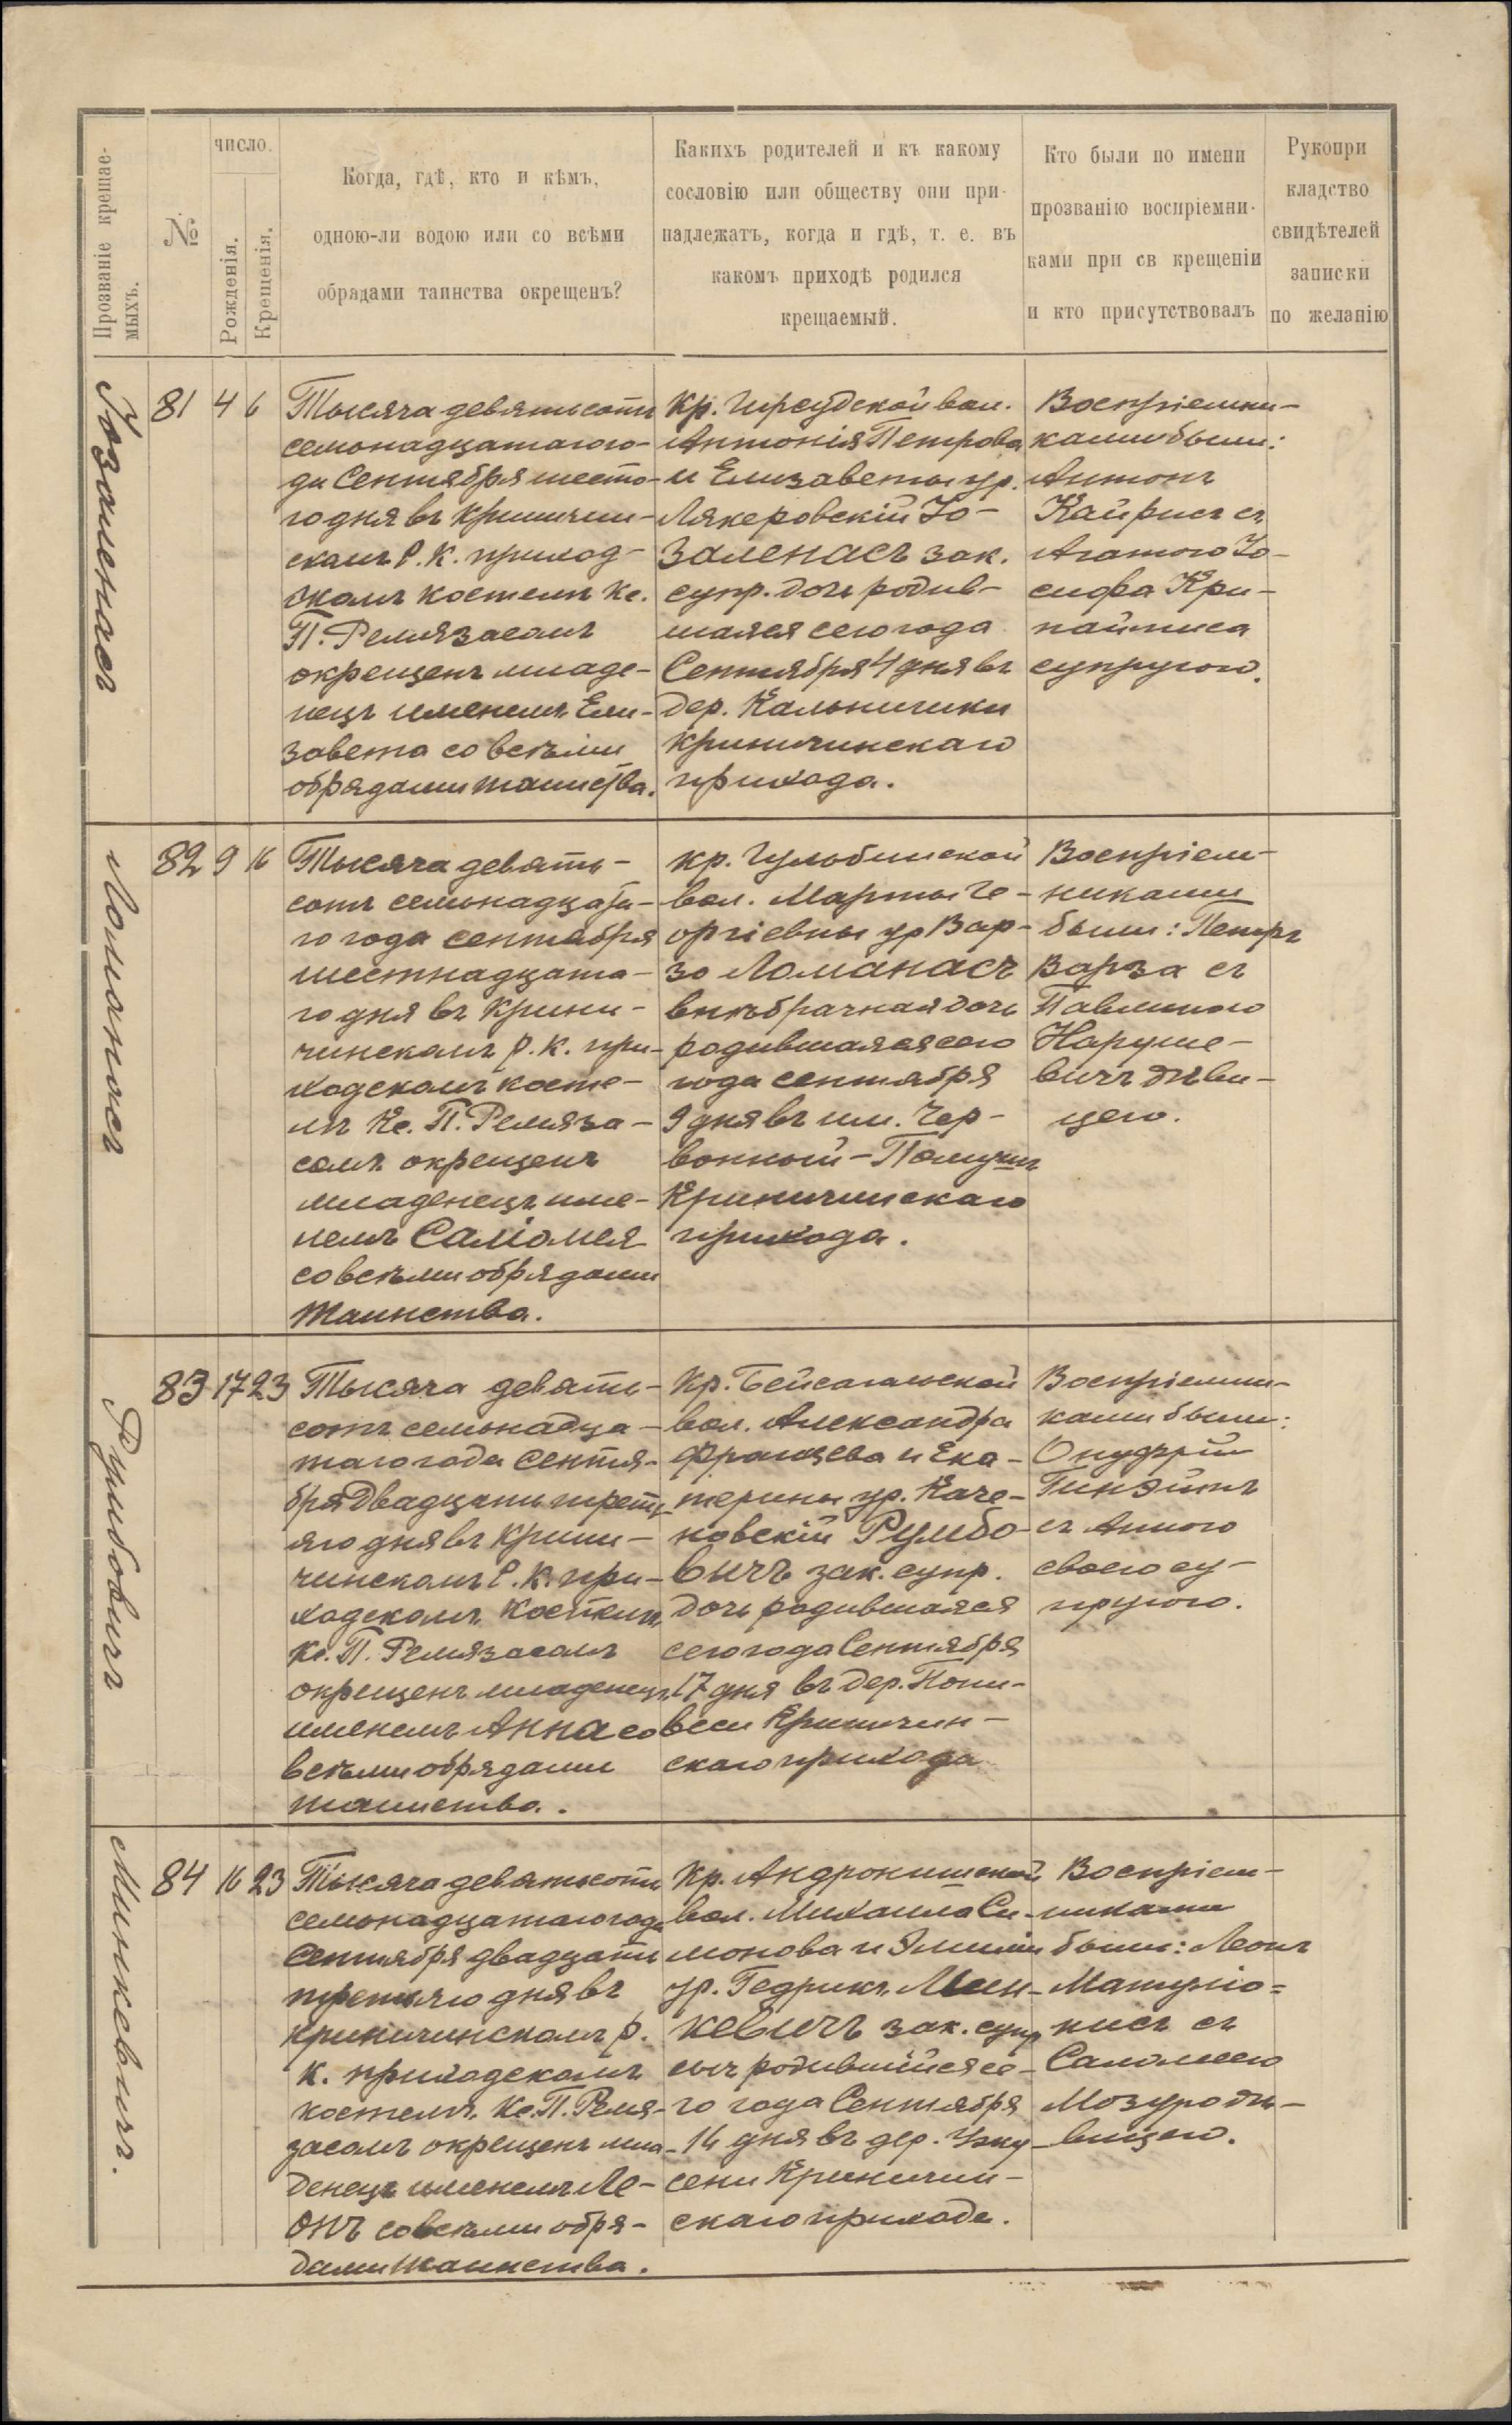 Прозваніе крещае-
мыхъ.
№
число.
Рожденія.
Крещенія.
Когда, гдѣ, кто и кѣмъ,
одною-ли водою или со всѣми
обрядами таинства окрещенъ?
Какихъ родителей и къ какому
сословію или обществу они при-
надлежатъ, когда и гдѣ, т. е. въ
какомъ приходѣ родился
крещаемый.
Кто были по имени
прозванію воспріемни-
ками при св крещеніи
и кто присутствовалъ
Рукопри
кладство
свидѣтелей
записки
по желанію
Іозаленасъ
81 4 6
Тысяча девятьсотъ
семьнадцатаго го-
да Сентября шесто-
го дня въ Криничин-
скомъ Р. К. приход-
скомъ костелѣ Кс.
П. Ремязасомъ
окрещенъ младе-
нецъ именемъ Ели-
завета со всѣми
обрядами таинства.
Кр. вол.
Антонія Петрова
и Елизаветы ур.
Лякеровскій Іо-
заленасъ зак.
супр. дочь родив-
шаяся сего года
Сентября 4 дня въ
дер. Кальничики
Криничинскаго
прихода.
Воспріемни-
ками были:
Антонъ
Кайрисъ съ
Агатою Іо-
сифа Кри-
супругою.
Ломанасъ
82 9 16
Тысяча девять-
сотъ семьнадцата-
го года сентября
шестнадцата-
го дня въ Крини-
чинскомъ р. к. при-
ходскомъ косте-
лѣ Кс. П. Ремяза-
сомъ окрещенъ
младенецъ име-
немъ Саломея
со всѣми обрядами
таинства.
кр.
вол. Марты Ге-
оргіевны ур Вар-
за Ломанасъ
внѣбрачная дочь
родившаяся сего
года сентября
9 дня въ им. Чер-
вонный-
Криничинскаго
прихода.
Воспріем-
никами
были: Петръ
Варза съ
Павлиною
Наруше-
вичъ дѣви-
цею.
Румбовичъ
83 17 23
Тысяча девять-
сотъ семьнадца-
таго года Сентя-
бря двадцать треть-
яго дня въ Крини-
чинскомъ Р. К. при-
ходскомъ Костелѣ
Кс. П. Ремязасомъ
окрещенъ младенецъ
именемъ Анна со
всѣми обрядами
таинства.
Кр. Бейсагольской
вол. Александра
Францева и Ека-
терины ур. Каче-
новскій Румбо-
вичъ зак. супр.
дочь родившаяся
сего года Сентября
17 дня въ дер. Пони-
веси Криничин-
скаго прихода
Воспріемни-
ками были:
Онуфрій
съ Анною
своею су-
пругою.
Минкевичъ.
84 16 23
Тысяча девятьсотъ
семьнадцатаго года
Сентября двадцать
третьяго дня въ
Криничинскомъ р.
К. приходскомъ
костелѣ Кс. П. Ремя-
засомъ окрещенъ мла-
денецъ именемъ Ле-
онъ со всѣми обря-
дами таинства.
Кр. Андронишской
вол. Михаила Си-
монова и Эмиліи
ур. Гедрикъ Мин-
кевичъ зак. супр
сынъ родившійся се-
го года Сентября
16 дня въ дер.
сени Криничин-
скаго прихода.
Воспріем-
никами
были: Леонъ
Матуліо=
нисъ съ
Саломеею
Мозуро дѣ-
вицею.